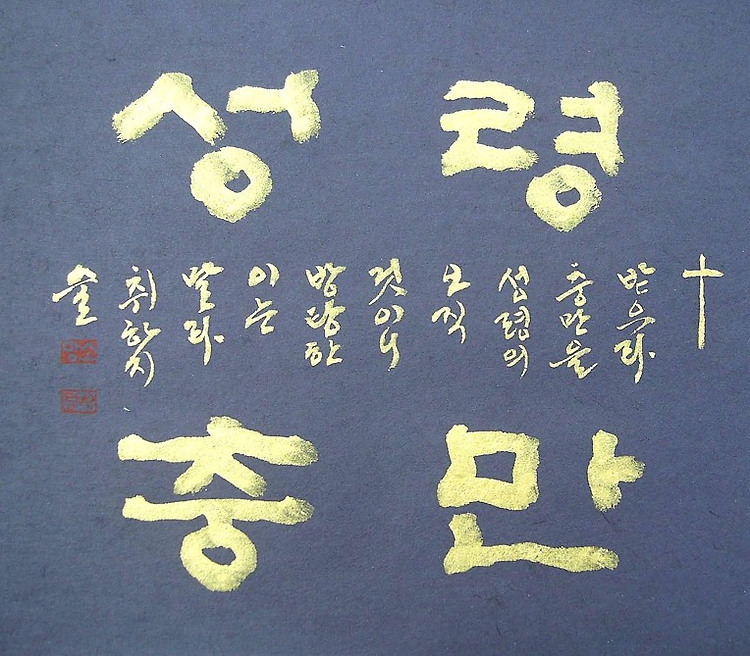 성령
술
취하지
말라
이는
방탕한
것이니
오직
성령의
충만을
받으라.
충만